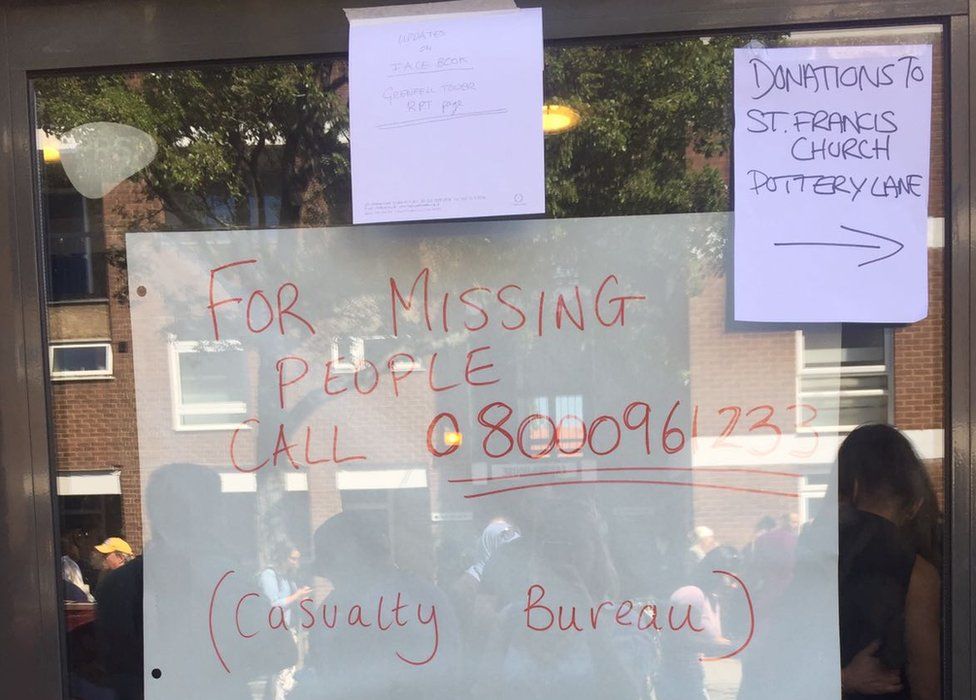 UPDATES
ON
FACE BOOK
GRENFELL TOWER
RPT page
DONATIONS TO
ST. FRANCIS
CHURCH
POTTERY LANE
FOR MISSING
PEOPLE
CALL 08000961233
(Casualty Bureau)